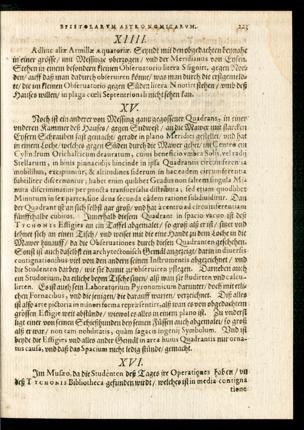 EPISTOLARVM ASTRONOMICARVM. 223
XIIII.
Adhuc aliæ Armillæ æquatoriæ. Seynde mit den obgedachten beynahe
in einer grösse, mit Messinge überzogen, vnd der Meridianus von Eysen.
Stehen in einem besondern kleinen Observatorio litera S signirt, gegen Nor-
den, auff daß man dadurch observiren könne, was man durch die erstgemel-
te, die im kleinen Observatorio gegen Süden litera N notirt stehen, vmb deß
Hauses willen, in plaga cœli Septentrionali nicht sehen kan.
XV.
Noch ist ein ander von Messing gantz gegossener Quadrans, in einer
andern Kammer deß Hauses, gegen Südwest, an die Mawer mit starcken
Eysern Schrauben fast gemacht, gerade in plano Meridiei gestellet, vnd hat
in einem Loche, welches gegen Süden durch die Mawer gehet, im Centro ein
Cylindrum Orichalcicum deauratum, cuius beneficio vmbra Solis, vel radij
Stellarum, in binis pinnacidijs hincinde in ipsa Quadrantis circumferentia
mobilibus, excipiuntur, & altitudines siderum in hac eadem circumferentia
subtiliter determinantur, habet enim quilibet Gradus non saltem singula Mi-
nuta discriminatim per puncta transuersalia distributa, sed etiam quodlibet
Minutum in sex partes, siue dena secunda eadem ratione subdiuiditur. Dan
der Quadrant ist an sich selbst gar groß, vnd hat à centro ad circumferentiam
fünffthalbe cubitos. Innerhalb diesem Quadrant in spacio vacuo ist deß
TYCHONIS Effigies an ein Taffel abgemalet, so groß als er ist, sitzet vnd
lehnet sich an einen Tisch, vnd weiset mit die eine Handt zu dem Loche in die
Mawer hinauff, da die Observationes durch diesen Quadranten geschehen.
Sonst ist auch daselbst ein architectonisch Gemäl angezeigt, darin in diuersis
contignationibus viel von den andern seinen Instrumentis abgezeichnet, vnd
die Studenten darbey, wie sie damit zu obseruiren pflegen. Darneben auch
ein Studorium, da etliche beyn Tische sitzen, als wan sie studirten vnd calcu-
lirten. Es ist auch sein Laboratorium Pyronomicum darunter, doch mit etli-
chen Fornacibus, vnd die jenigen, die darauff warten, verzeichnet. Diß alles
ist affabre pictoria in minori forma repræsentirt, als wart es von obgedachtem
grössern Effigie weit abstünde, wiewol es alles in einem plano ist. Zu vnderst
liget einer von seinen Schießhunden bey seinen Füssen auch abgemalet, so groß
als er war, non tam nobilitatis, quàm sagacis ingenij Symbolum. Vnd ist
beyde die Effigies vnd alles ander Gemäl in area huius Quadrantis nur orna-
tus causa, vnd daß das Spacium nicht ledig stünde, gemacht.
XVI.
Im Museo, da die Studenten deß Tages ire Operationes haben, vn
deß TYCHONIS Bibliotheca gefunden wirdt, welches ist in media contigna
tione